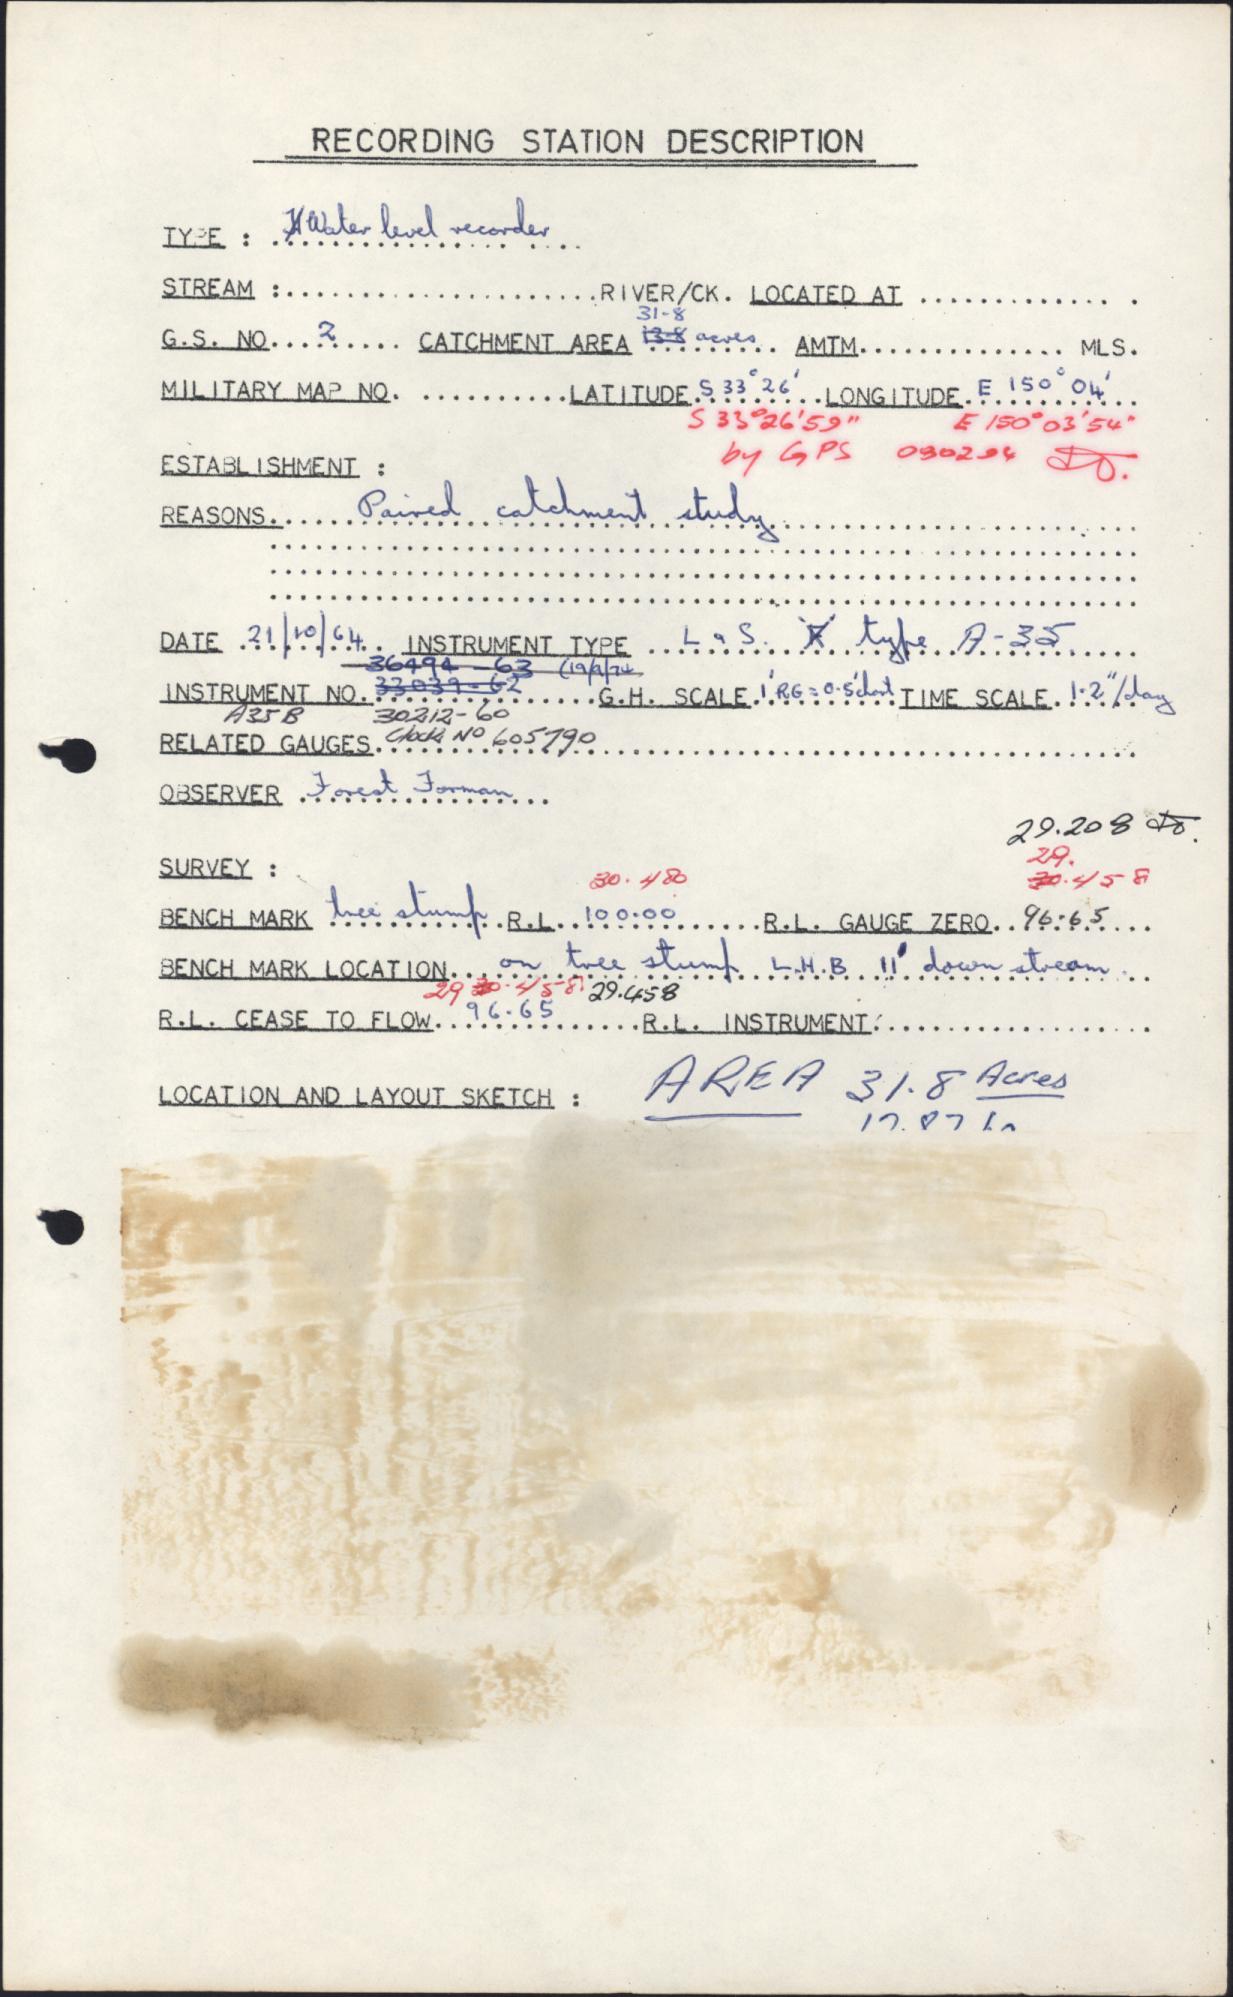 RECORDING STATION DESCRIPTION
TYPE : Water level recorder
STREAM :......................RIVER/CK. LOCATED AT ..............
31-8
G.S. NO....2...... CATCHMENT AREA 13-8 acres AMTM.............. MLS.
MILITARY MAP NO. ..........LATITUDE S 33° 26' LONGITUDE E 150° 04'
S 33°26'59" E 150°03'54"
by GPS 090294
ESTABLISHMENT :
REASONS.... Paired catchment study
DATE 21/10/64 INSTRUMENT TYPE L & S. F type A-35
36494-63 (19/9/74
INSTRUMENT NO. 33039-62 G.H. SCALE 1' RG = 0.5' chart TIME SCALE 1.2"/day
A35B 30212-60
RELATED GAUGES. Clock No 605790
OBSERVER Forest Forman
29.208
29.
SURVEY : 30.480 30.458
BENCH MARK tree stump R.L. 100.00 R.L. GAUGE ZERO 96.65
BENCH MARK LOCATION on tree stump L.H.B 11' down stream
29 30.458 29.458
R.L. CEASE TO FLOW 96.65 R.L. INSTRUMENT
LOCATION AND LAYOUT SKETCH : AREA 31.8 Acres